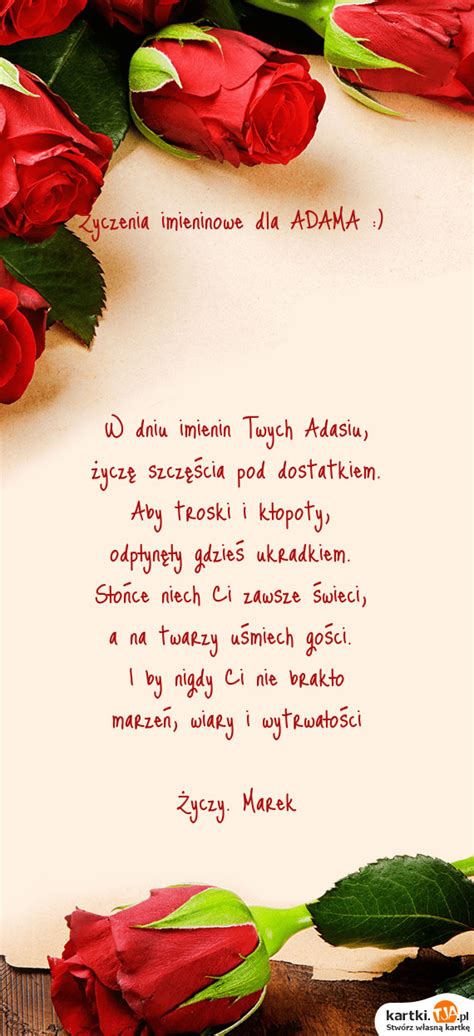 Życzenia imieninowe dla ADAMA :)
W dniu imienin Twych Adasiu,
życzę szczęścia pod dostatkiem.
Aby troski i kłopoty,
odpłynęły gdzieś ukradkiem.
Słońce niech Ci zawsze świeci,
a na twarzy uśmiech gości.
I by nigdy Ci nie brakło
marzeń, wiary i wytrwałości
Życzy. Marek
kartki.TJA.pl
Stwórz własną kartkę